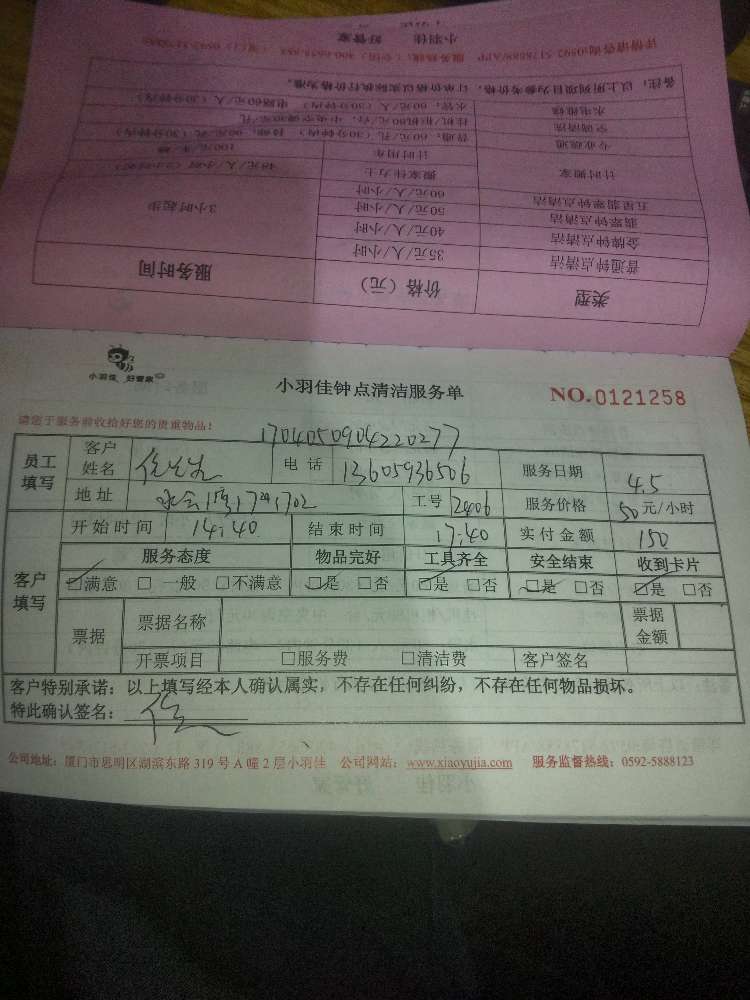 详情请咨询0592-5178588/APP
小羽佳 好管家
备注：以上所列项目价格为参考价，订单价格以实际执行价格为准。
水电维修
空调清洗
专业疏通
计时用车
100元/车/趟
计时搬家
搬家佳力士
48元/人/小时（2小时起）
五星翡翠钟点清洁
60元/人/小时
翡翠钟点清洁
50元/人/小时
3小时起步
金牌钟点清洁
40元/人/小时
普通钟点清洁
35元/人/小时
类型
价格（元）
服务时间
小羽佳 好管家
小羽佳钟点清洁服务单
NO.0121258
请您于服务前收拾好您的贵重物品！
1704050904220277
员工填写
客户姓名
电话 13605936506
服务日期 4.5
地址
工号 2406
服务价格 50元/小时
开始时间 14:40
结束时间 17:40
实付金额 150
客户填写
服务态度 物品完好 工具齐全 安全结束 收到卡片
☑满意 □一般 □不满意 ☑是 □否 ☑是 □否 ☑是 □否 ☑是 □否
票据
票据名称
票据金额
开票项目 □服务费 □清洁费 客户签名
客户特别承诺：以上填写经本人确认属实，不存在任何纠纷，不存在任何物品损坏。
特此确认签名：
公司地址：厦门市思明区湖滨东路319号A幢2层小羽佳 公司网站：www.xiaoyujia.com 服务监督热线：0592-5888123